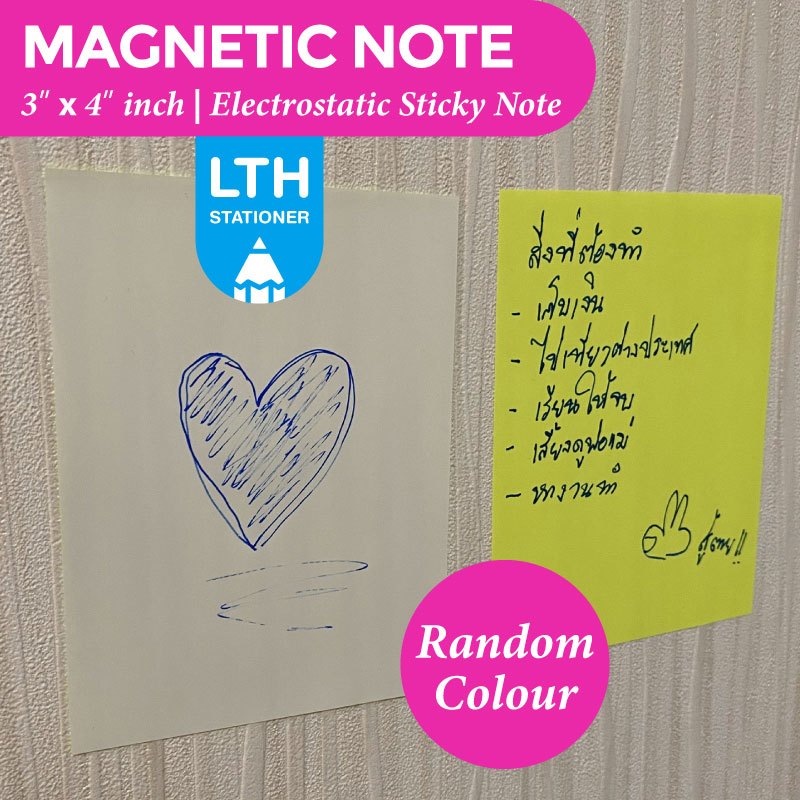 MAGNETIC NOTE
3" x 4" inch | Electrostatic Sticky Note
LTH
STATIONER
สิ่งที่ต้องทำ
- เก็บเงิน
- ไปเที่ยวต่างประเทศ
- เรียนให้จบ
- เลี้ยงดูพ่อแม่
- หางานทำ
สู้ตาย!!
Random
Colour